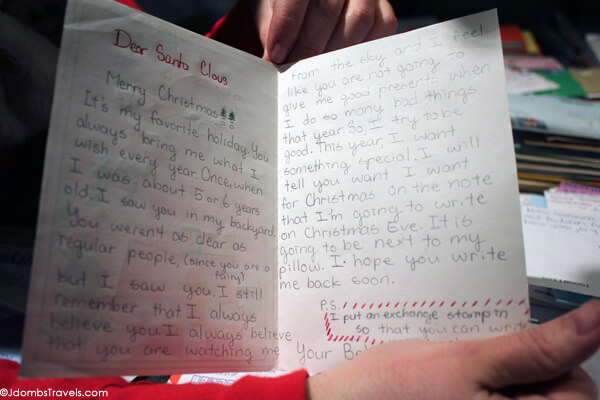 Dear Santa Claus
Merry Christmas
It's my favorite holiday. You
always bring me what I
wish every year. Once, when
I was about 5 or 6 years
old, I saw you in my backyard.
You weren't as clear as
regular people, (since you are a
fairy)
but I saw you. I still
remember that. I always
believe you. I always believe
that you are watching me
from the sky, and I feel
like you are not going to
give me good presents when
I do so many bad things
that year. So, I try to be
good. This year, I want
something special. I will
tell you want I want
for Christmas on the note
that I'm going to write
on Christmas Eve. It is
going to be next to my
pillow. I hope you write
me back soon.
P.S.
I put an exchange stamp in
so that you can write
Your
©JdombsTravels.com